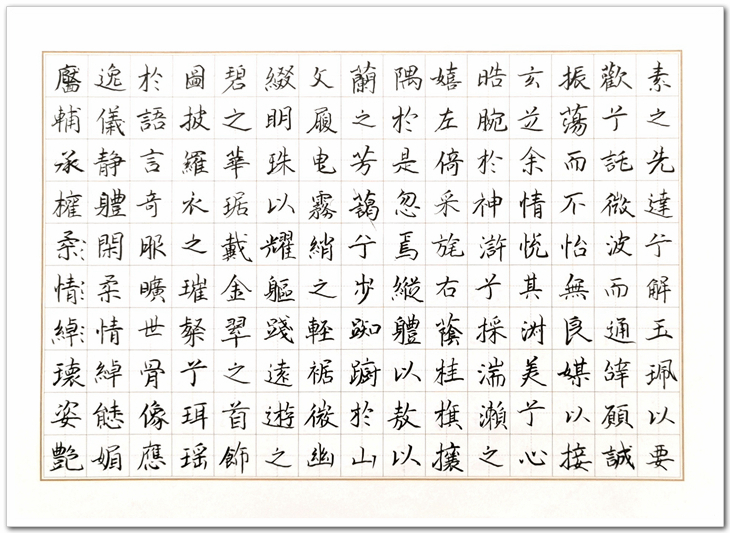 靨輔承權柔情綽瓌姿艷
逸儀静體閑柔情綽態媚
於語言奇服曠世骨像應
圖披羅衣之璀粲兮珥瑶
碧之華琚戴金翠之首飾
綴明珠以耀軀踐遠遊之
文履曳霧綃之輕裾微幽
蘭之芳藹兮步踟躕於山
隅於是忽焉縱體以敖以
嬉左倚采旄右蔭桂旗攘
皓腕於神滸兮採湍瀨之
玄芝余情悅其淑美兮心
振蕩而不怡無良媒以接
歡兮託微波而通辭願誠
素之先達兮解玉珮以要